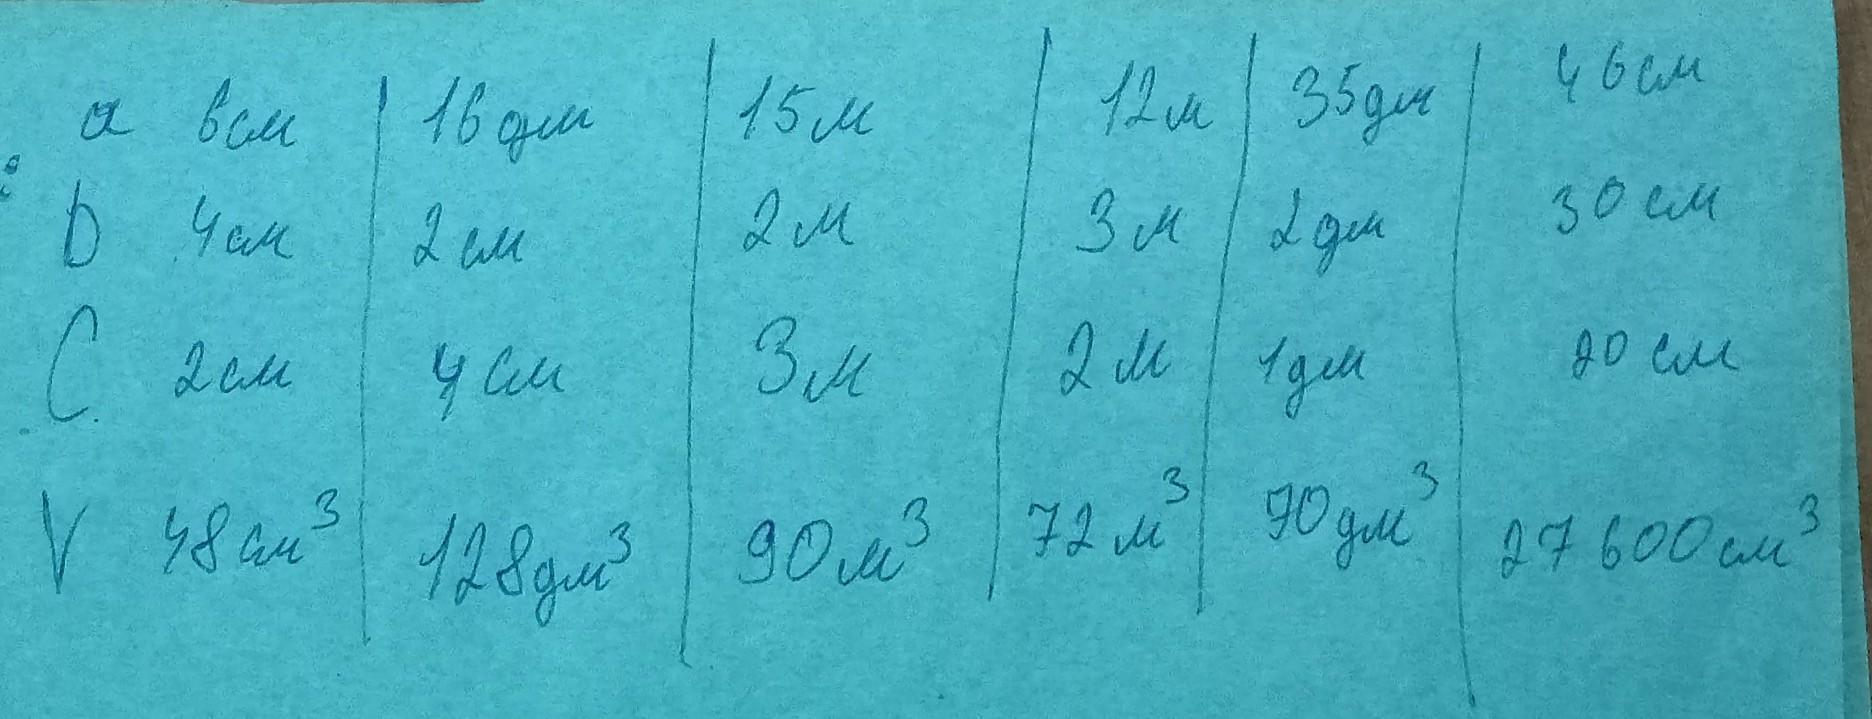 a 6см 16дм 15м 12м 35дм 46см
b 4см 2см 2м 3м 2дм 30см
C 2см 4см 3м 2м 1дм 20см
V 48см³ 128дм³ 90м³ 72м³ 70дм³ 27600см³